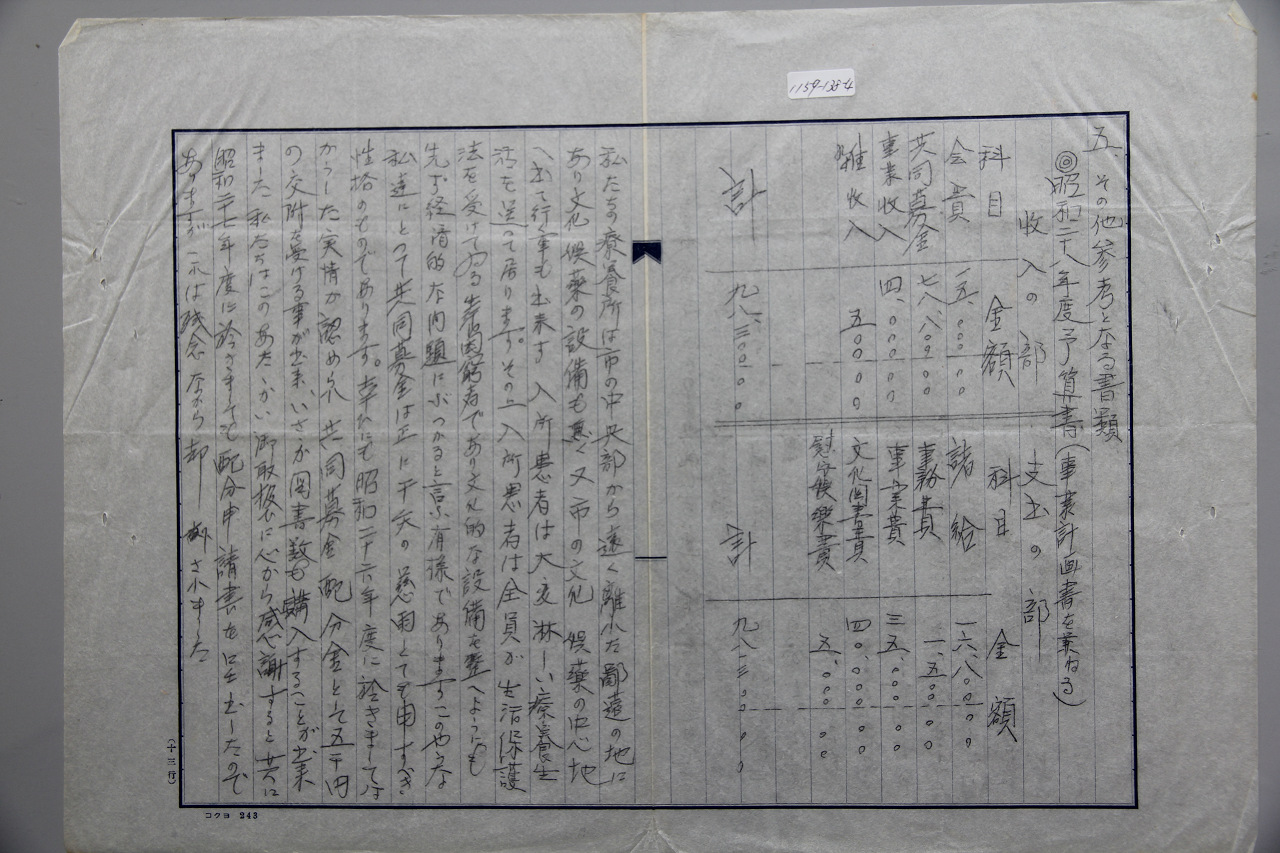 1159-138-4
五、その他参考となる書類
◎昭和二十八年度予算書(事業計画書を兼ねる)
收入の部
支出の部
科目 金額
科目 金額
会費 一五、〇〇〇 〇〇
諸給 一六、八〇〇 〇〇
共同募金 七八、八〇〇 〇〇
事務費 一、五〇〇 〇〇
事業收入 四、〇〇〇 〇〇
事業費 三五、〇〇〇 〇〇
雑收入 五〇〇 〇〇
文化図書費 四〇、〇〇〇 〇〇
慰安娯楽費 五、〇〇〇 〇〇
計 九八、三〇〇 〇〇
計 九八、三〇〇 〇〇
私たちの療養所は市の中央部から遠く離れた鄙遠の地に
あり文化娯楽の設備も悪く又市の文化娯楽の中心地
へ出て行く事も出来ず入所患者は大変淋しい療養生
活を送って居ります。その上入所患者は全員が生活保護
法を受けてゐる生活困窮者であり文化的な設備を整へようにも
先ず経済的な問題にぶつかると言ふ有様でありますこのやうな
私達にとって共同募金は正に干天の慈雨とても申すべき
性格のものであります。幸ひにも昭和二十六年度に於きましては
かうした実情が認められ共同募金配分金として五千円
の交附を受ける事が出来、いさゝか図書数も購入することが出来
ました私たちはこのあたゝかい御取扱いに心から感謝すると共に
昭和二十七年度に於きましても配分申請書を呈出したので
ありますが之は残念ながら却下されました
(十三行)
コクヨ 243